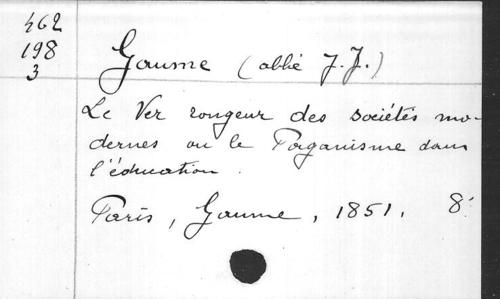 462
198
3
Gaume (abbé J.J.)
Le Ver rongeur des sociétés mo-
dernes ou le Paganisme dans
l'éducation.
Paris, Gaume, 1851. 8°